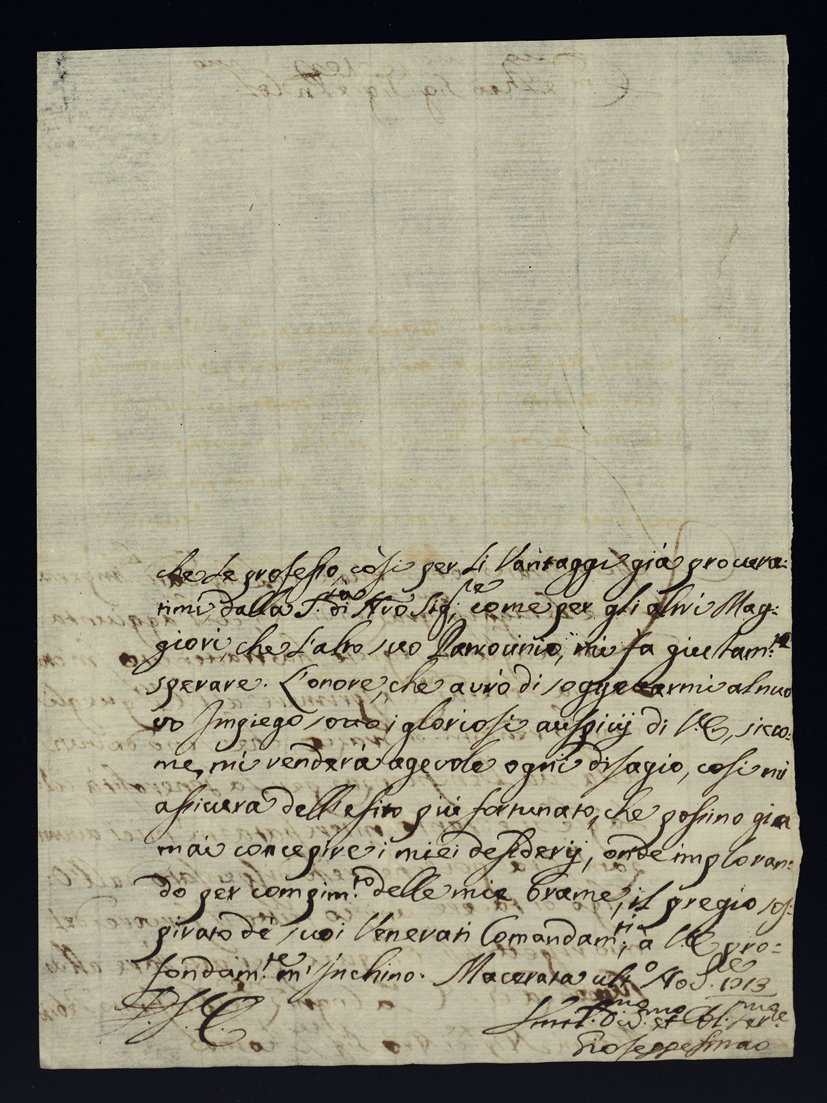 che Le professo, così per Li Vantaggi già procura-
timi dalla S.ta di Nrõ Sig.re, come per gli altri Mag-
giori, che L'alto suo Patrocinio, mi fa giustam.te
sperare. L'onore, che avrò di soggettarmi al nuo
vo Impiego sotto i gloriosi auspicij di V.E., sicco-
me, mi renderà agevole ogni disagio, così mi
assicura dell'esito più fortunato, che possino gia
mai concepire i miei desiderij, onde imploran-
do per compim.to delle mie brame, il pregio sos-
pirato de' suoi Venerati Comandam.ti, à V.E. pro-
fondam.te m'Inchino. Macerata ult.o 1713
D. V. E.
Gioseppe